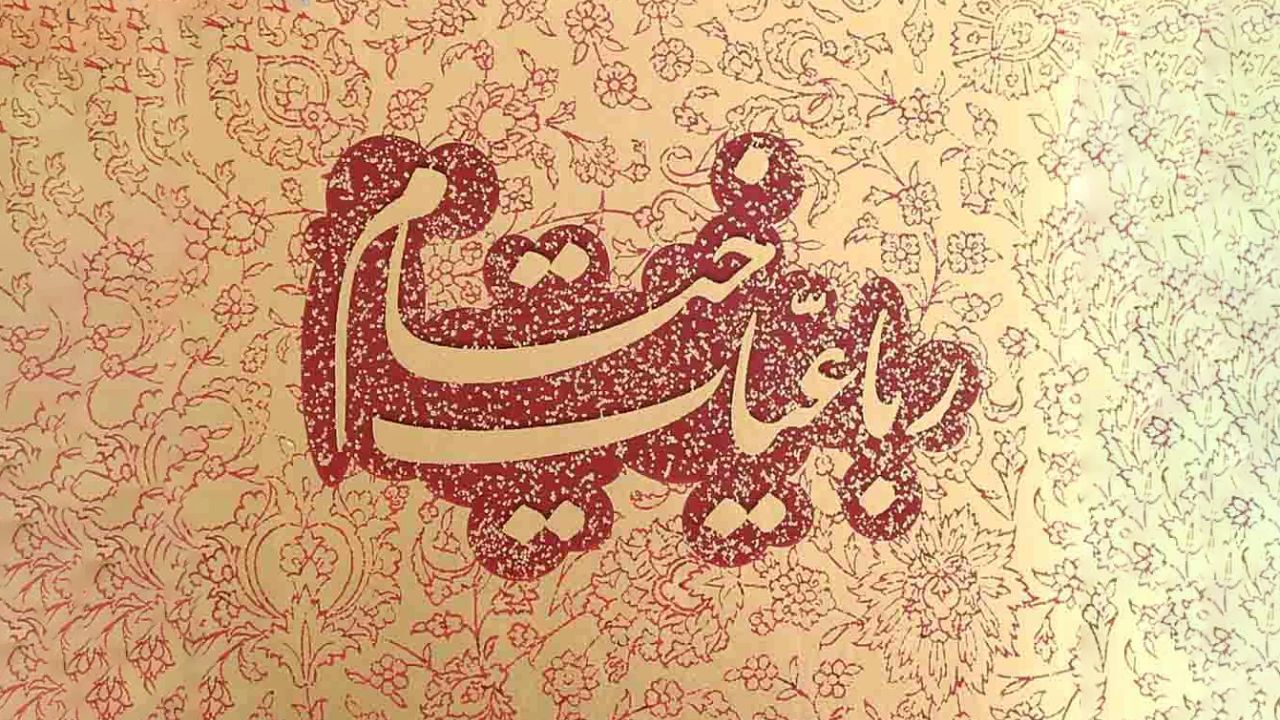 رباعیّات خیام